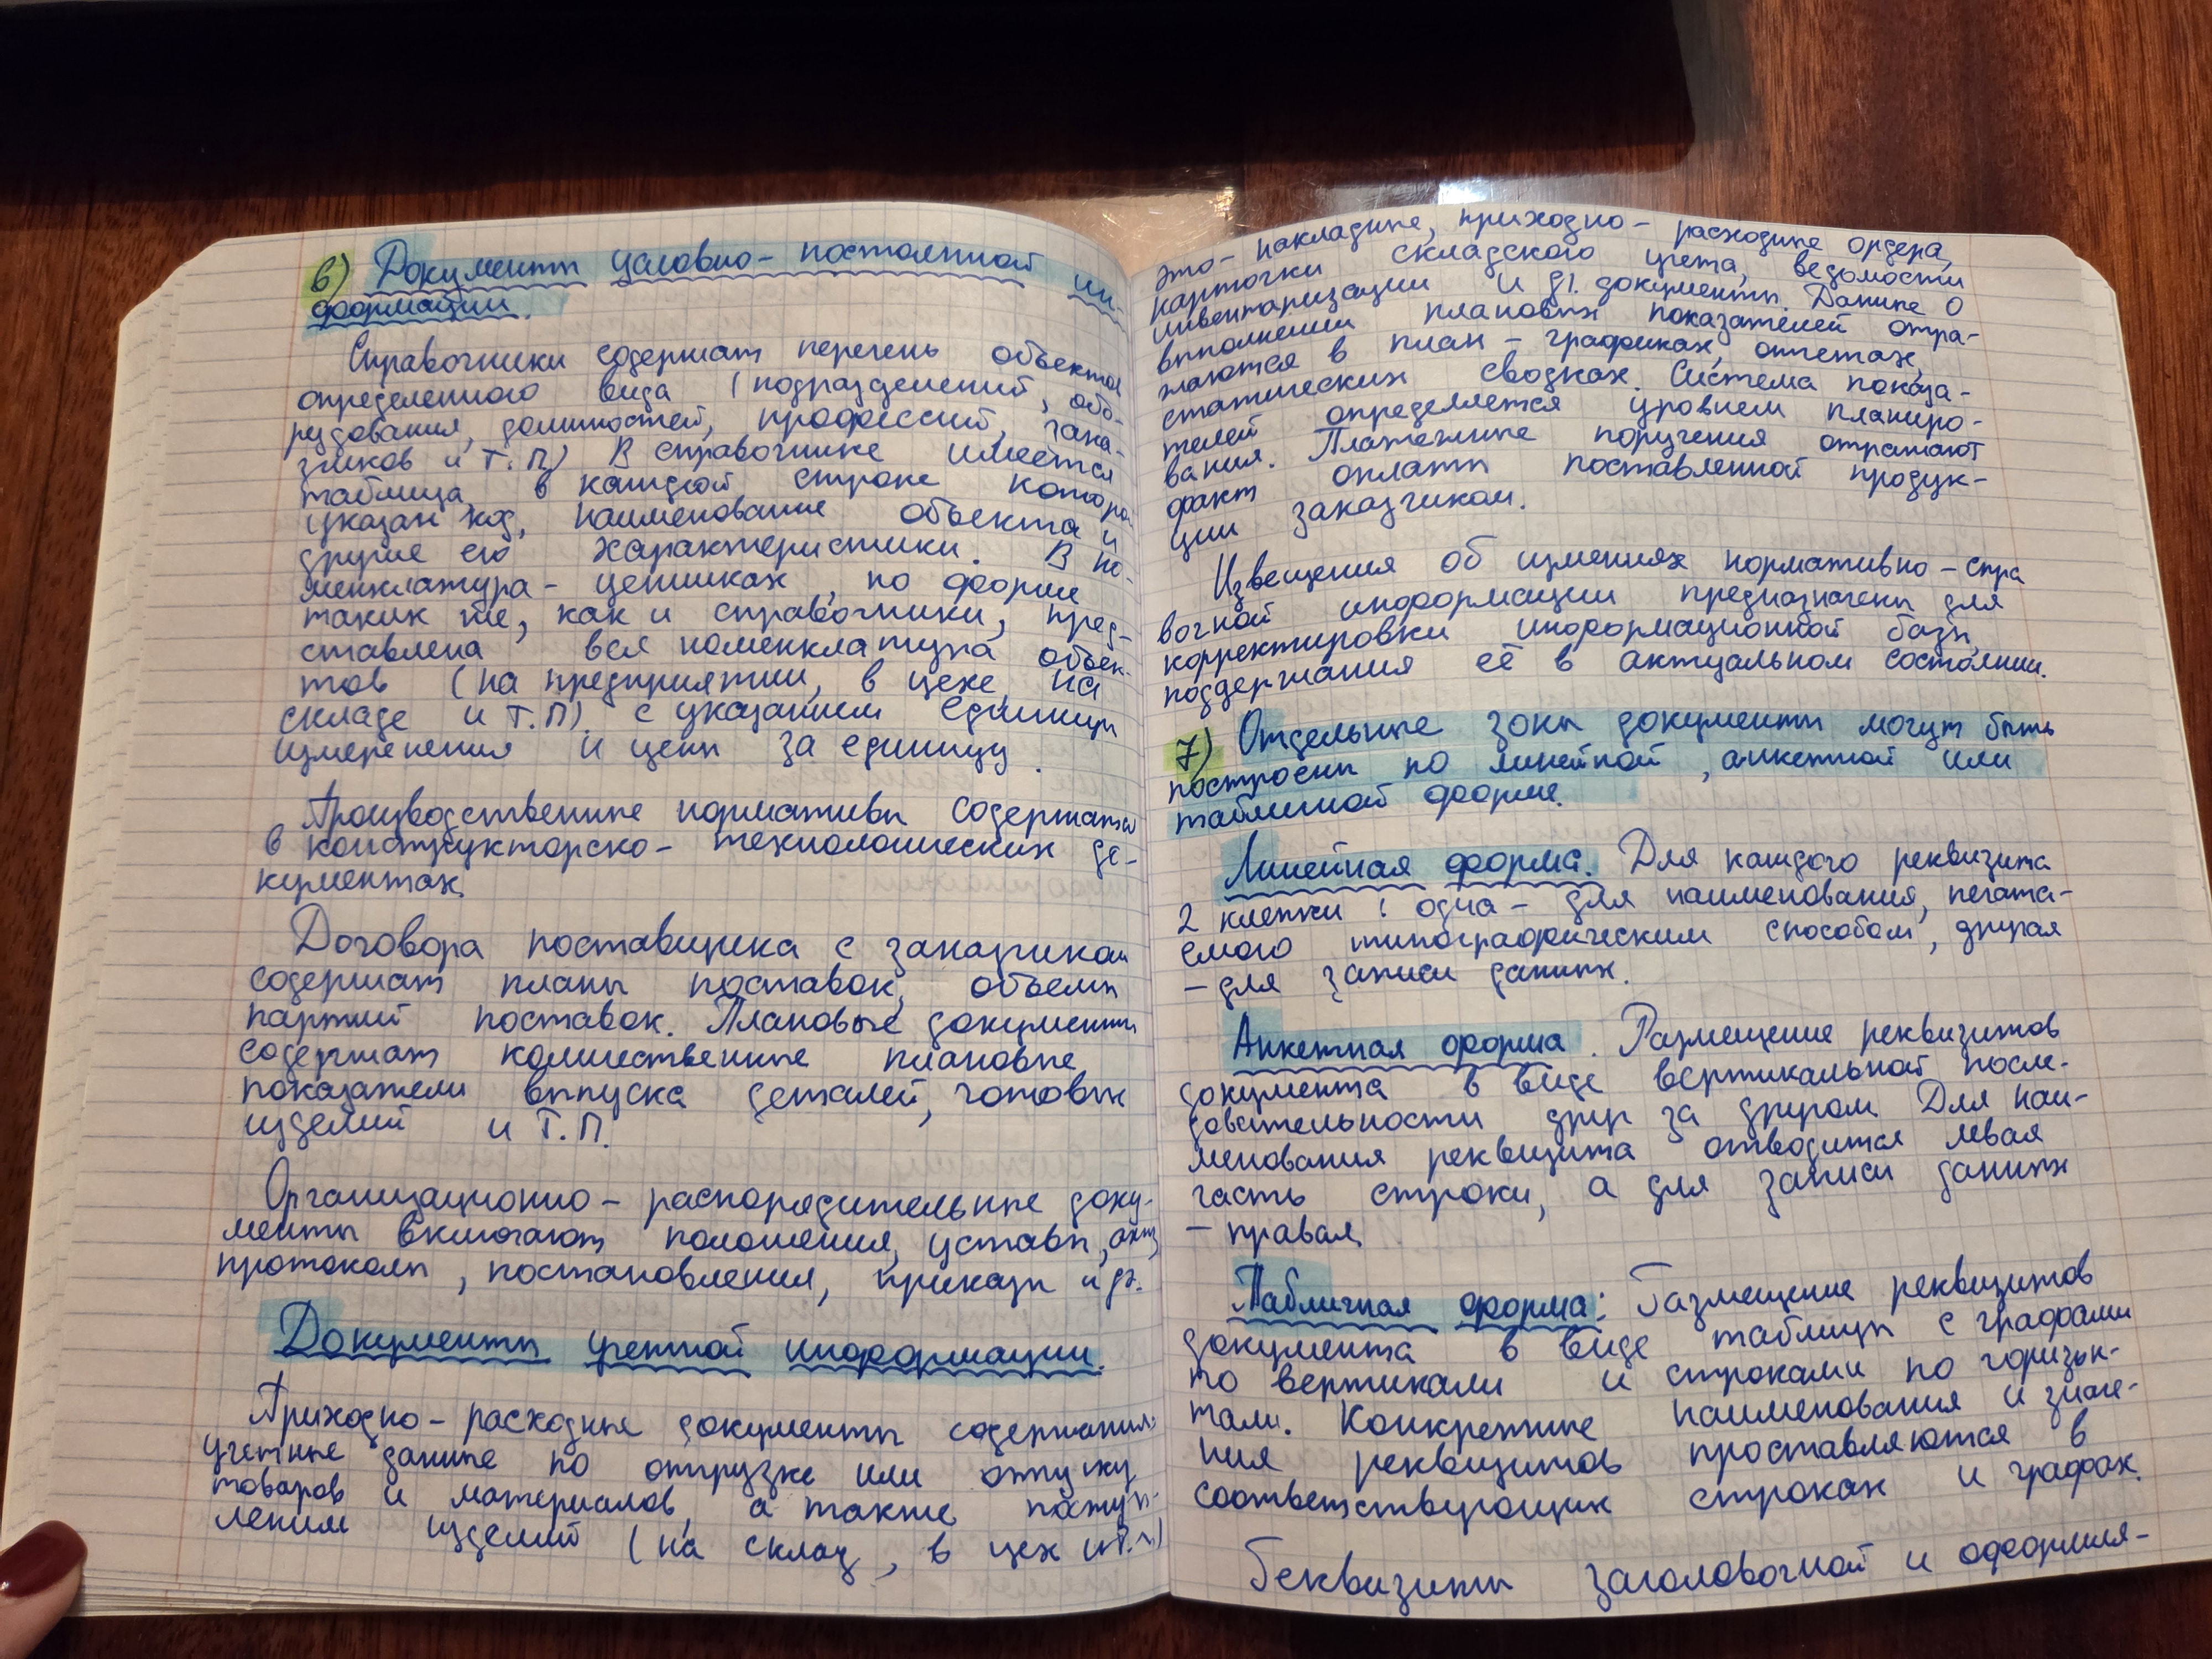 6) Документы условно-постоянной ин-
формации.
Справочники содержат перечень объектов
определенного вида (подразделений, обо-
рудования, должностей, профессий, зака-
зчиков и т.п) В справочнике имеется
таблица, в каждой строке которо
указан код, наименование объекта и
другие его характеристики. В но-
менклатура-ценниках, по форме
таких же, как и справочники, пред-
ставлена вся номенклатура объек-
тов (на предприятии, в цехе, на
складе и т.п) с указанием единицы
измерения и цены за единицу.
Производственные нормативы содержатся
в конструкторско-технологических до-
кументах.
Договора поставщика с заказчиком
содержат планы поставок, объемы
партий поставок. Плановые документы
содержат количественные плановые
показатели выпуска деталей, готовых
изделий и т.п.
Организационно-распорядительные доку-
менты включают положения, уставы, акты,
протоколы, постановления, приказы и др.
Документы учетной информации.
Приходно-расходные документы содержат
учетные данные по отгрузке или отпуску
товаров и материалов, а также поступ-
лении изделий (на склад, в цех и т.п)
это-накладные, приходно-расходные ордера,
карточки складского учета, ведомости
инвентаризации и др. документы. Данные о
выполнении плановых показателей отра-
жаются в план-графиках, отчетах,
статических сводках. Система показа-
телей определяется уровнем планиро-
вания. Платежные поручения отражают
факт оплаты поставленной продук-
ции заказчиком.
Извещения об измениях нормативно-спра
вочной информации предназначены для
корректировки информационной базы,
поддержания её в актуальном состоянии.
7) Отдельные зоны документы могут быть
построены по линейной, анкетной или
табличной форме.
Линейная форма. Для каждого реквизита
2 клетки: одна - для наименования, печата-
емого типографическим способом, другая
- для записи данных.
Анкетная форма. Размещение реквизитов
документа в виде вертикальной после-
довательности друг за другом. Для наи-
менования реквизита отводится левая
часть строки, а для записи данных
- правая.
Табличная форма: Размещение реквизитов
документа в виде таблицы с графами
по вертикали и строками по горизон-
тали. Конкретные наименования и значе-
ния реквизитов проставляются в
соответствующих строках и графах.
Реквизиты заголовочной и оформля-